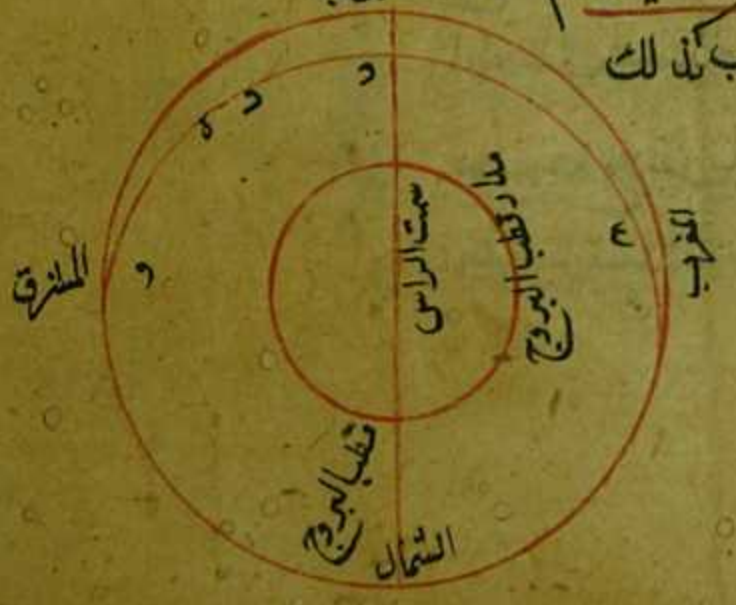 كذلك
د
د
ه
و
ع
المشرق
المغرب
سمت الراس
مدار قطب البروج
قطب البروج
الشمال